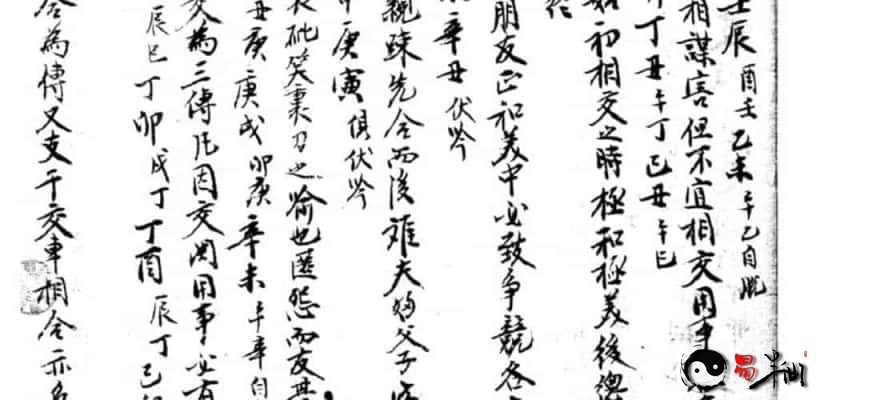 壬辰 酉壬 乙未 午乙自
相謀害但不宜相交用事
丁丑 午丁 己丑 午巳
初相交之時極和極美後
朋友正和美中必致爭競各
辛丑 伏吟
親疎先合而後難夫婦父子
庚寅 俱伏吟
砒笑裏刀之喻也匿怨而友其
庚 庚戌 卯庚 辛未 午辛自
交為三傳凡因交関用事必有
辰巳 丁卯 戌丁 丁酉 辰丁 己
合為傳又支干交車相合亦多
易半仙